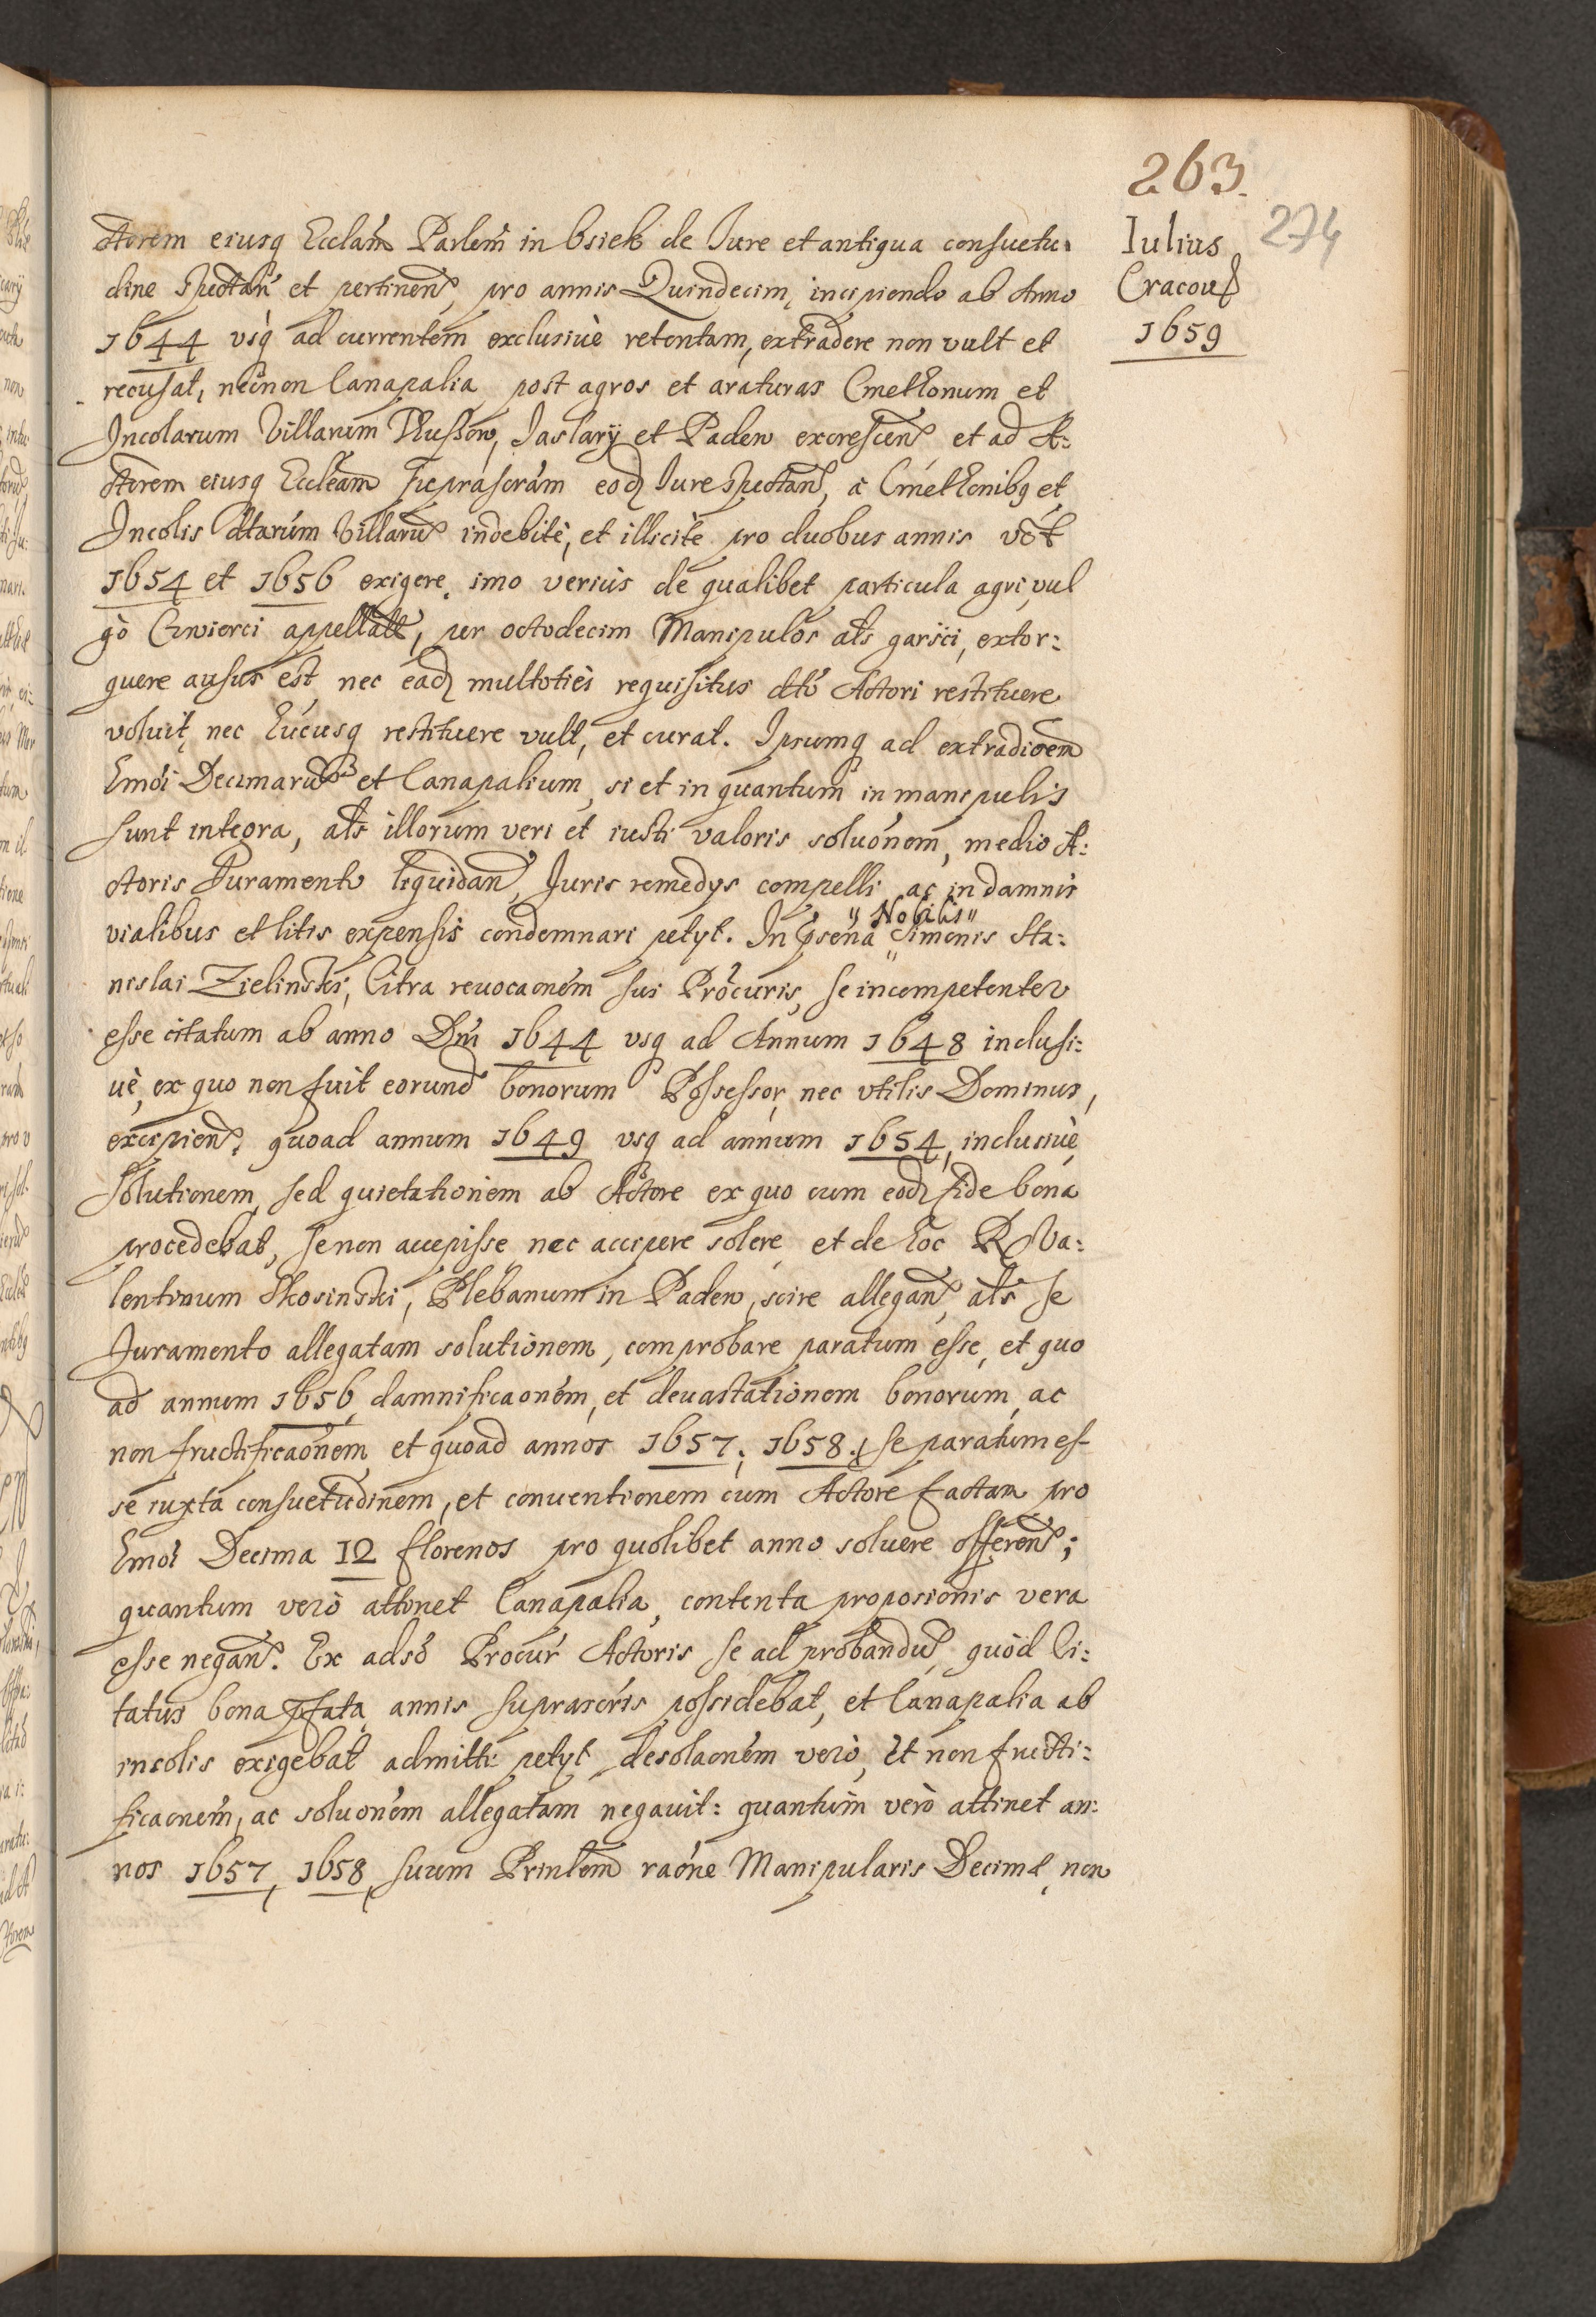 263.
274
Iulius
Cracou
1659
ctorem eiusq Ecclam Parlem in bsiek de Iure et antiqua consuetu-
dine spectan et pertinen, pro annis Quindecim, incipiendo ab Anno
1644 vsq ad currentem exclusiuè retentam, extradere non vult et
recusat, necnon Canapalia post agros et araturas Cmethonum et
Incolarum Villarum Thuszow, Iaslary et Padew excrescen et ad A:
ctorem eiusq Eccleam suprascram eod Iure spectan, a Cmethonibq et
Incolis dtarum Villaru indebitè, et illicitè pro duobus annis vět
1654 et 1656 exigere, imo verius de qualibet particula agri, vul
gò Czwierci appellatt, per octodecim Manipulos als garsci, extor:
quere ausus est nec ead multotiès requisitus dto Actori restituere
voluit, nec hucusq restituere vult, et curat. Ipsumq ad extradioem
hmoi Decimaru et Canapalium, si et in quantum in manipulis
sunt integra, als illorum veri et iusti valoris soluonem, medio A:
ctoris Iuramento liquidan, Iuris remedys compelli ac in damnis
vialibus et litis expensis condemnari petyt. In psena "Nobilis" Simonis Sta:
nislai Zielinski, Citra reuocaonem sui Procuris, se incompetenter
esse citatum ab anno Dni 1644 vsq ad Annum 1648 inclusi:
uè, ex quo non fuit eorund bonorum Possessor, nec vtilis Dominus,
excipien. quoad annum 1649 vsq ad annum 1654, inclusiuè
solutionem, sed quietationem ab Actore ex quo cum eod fide bona
procedebat, se non accepisse nec accipere solere, et de hoc R Va:
lentinum Skosinski, Plebanum in Padew, scire allegan, als se
Iuramento allegatam solutionem, comprobare paratum esse, et quo
ad annum 1656, damnificaonem, et deuastationem bonorum, ac
non fructificaonem et quoad annos 1657, 1658, se paratum es-
se iuxta consuetudinem, et conuentionem cum Actore factam pro
hmoi Decima 12 florenos pro quolibet anno soluere offeren;
quantum verò attinet Canapalia, contenta proposionis vera
esse negan. Ex adso Procur Actoris se ad probandu, quòd Ci:
tatus bona pfata annis suprascris possidebat, et Canapalia ab
incolis exigebat admitti petyt, desolaonem verò, et non fructi:
ficaonem, ac soluonem allegatam negauit: quantum verò attinet an:
nos 1657, 1658, suum Prinlem raone Manipularis Decimæ, non